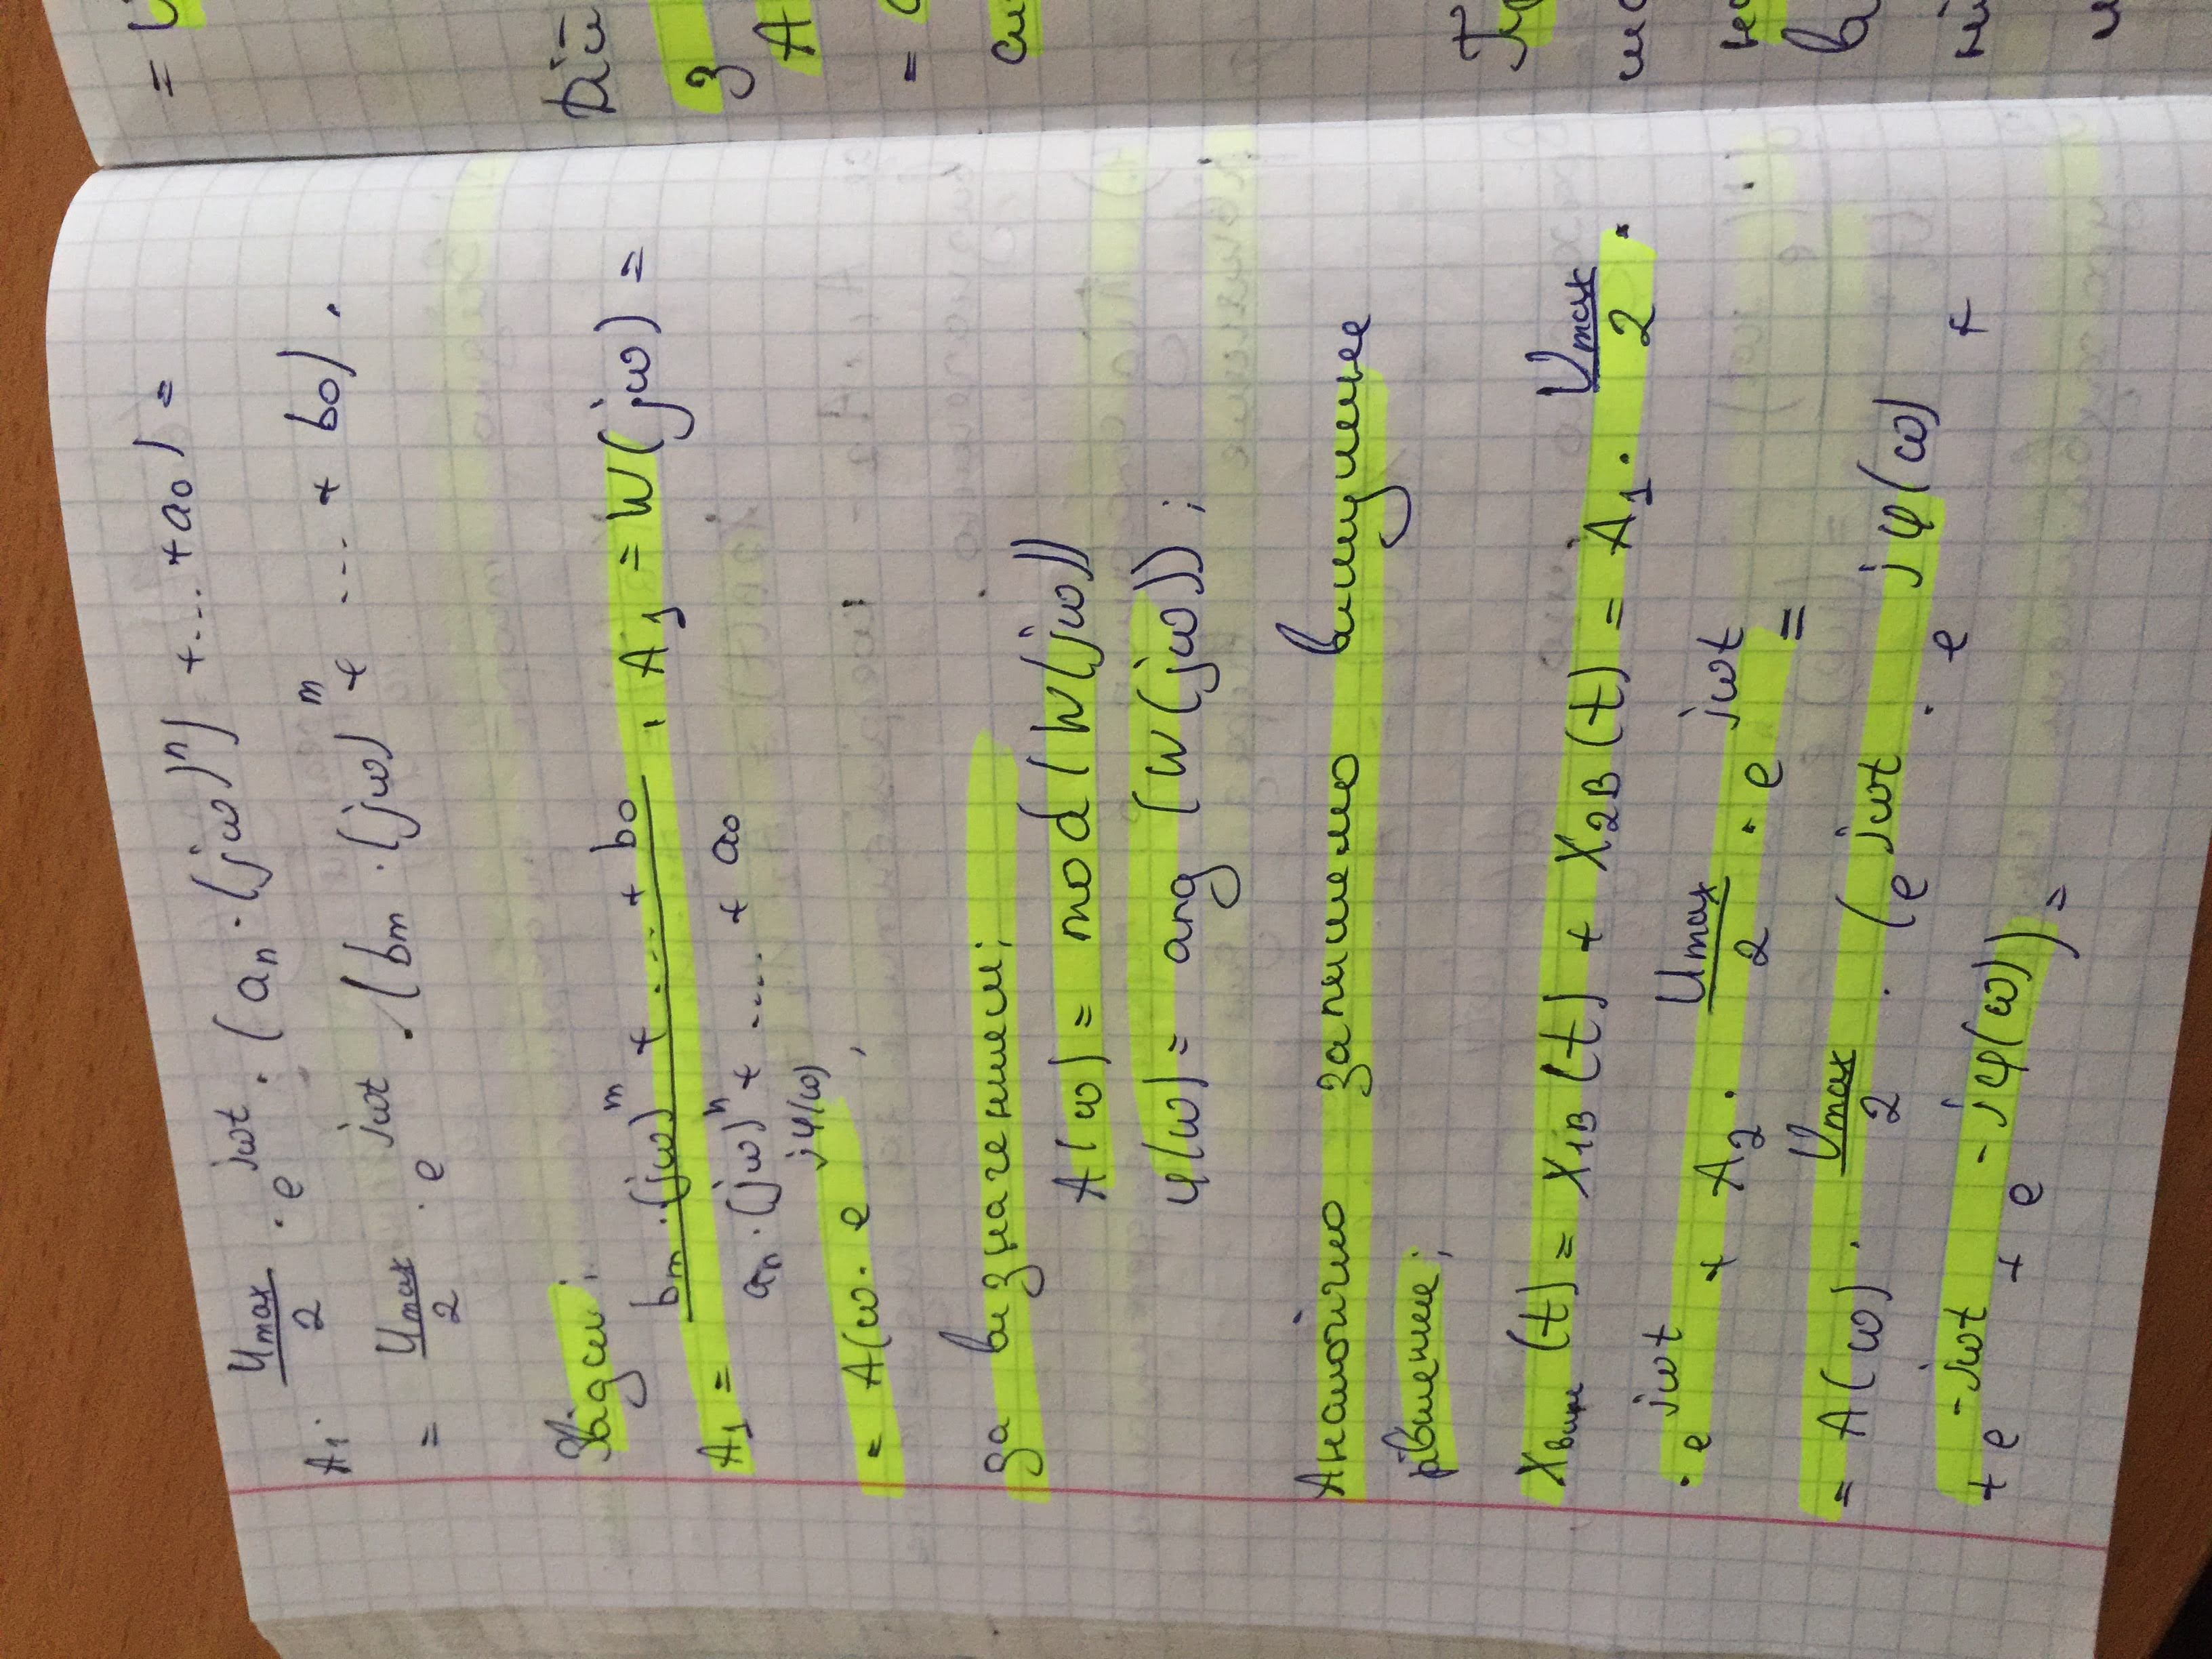 A₁ · Umax/2 · e^jωt · (aₙ · (jω)ⁿ) + ... + a₀) =
= Umax/2 · e^jωt · (bₘ · (jω)^m + ... + b₀).
Звідси:
A₁ = bₘ · (jω)^m + ... + b₀ / aₙ · (jω)ⁿ + .... + a₀ , A₁ = W(jω) =
= A(ω · e^jφ(ω) ,
за визначенням;
A(ω) = mod(W(jω))
φ(ω) = ang (W(jω));
Аналогічно запишемо вимушене
рівняння;
Xвим (t) = X₁в (t) + X₂в (t) = A₁ · Umax/2 ·
· e^jωt + A₂ · Umax/2 · e^jωt =
= A(ω) · Umax/2 · (e^jωt · e^jφ(ω) +
+ e^-jωt + e^-jφ(ω)) =
= U
Дій
З
A
=
Пр
в